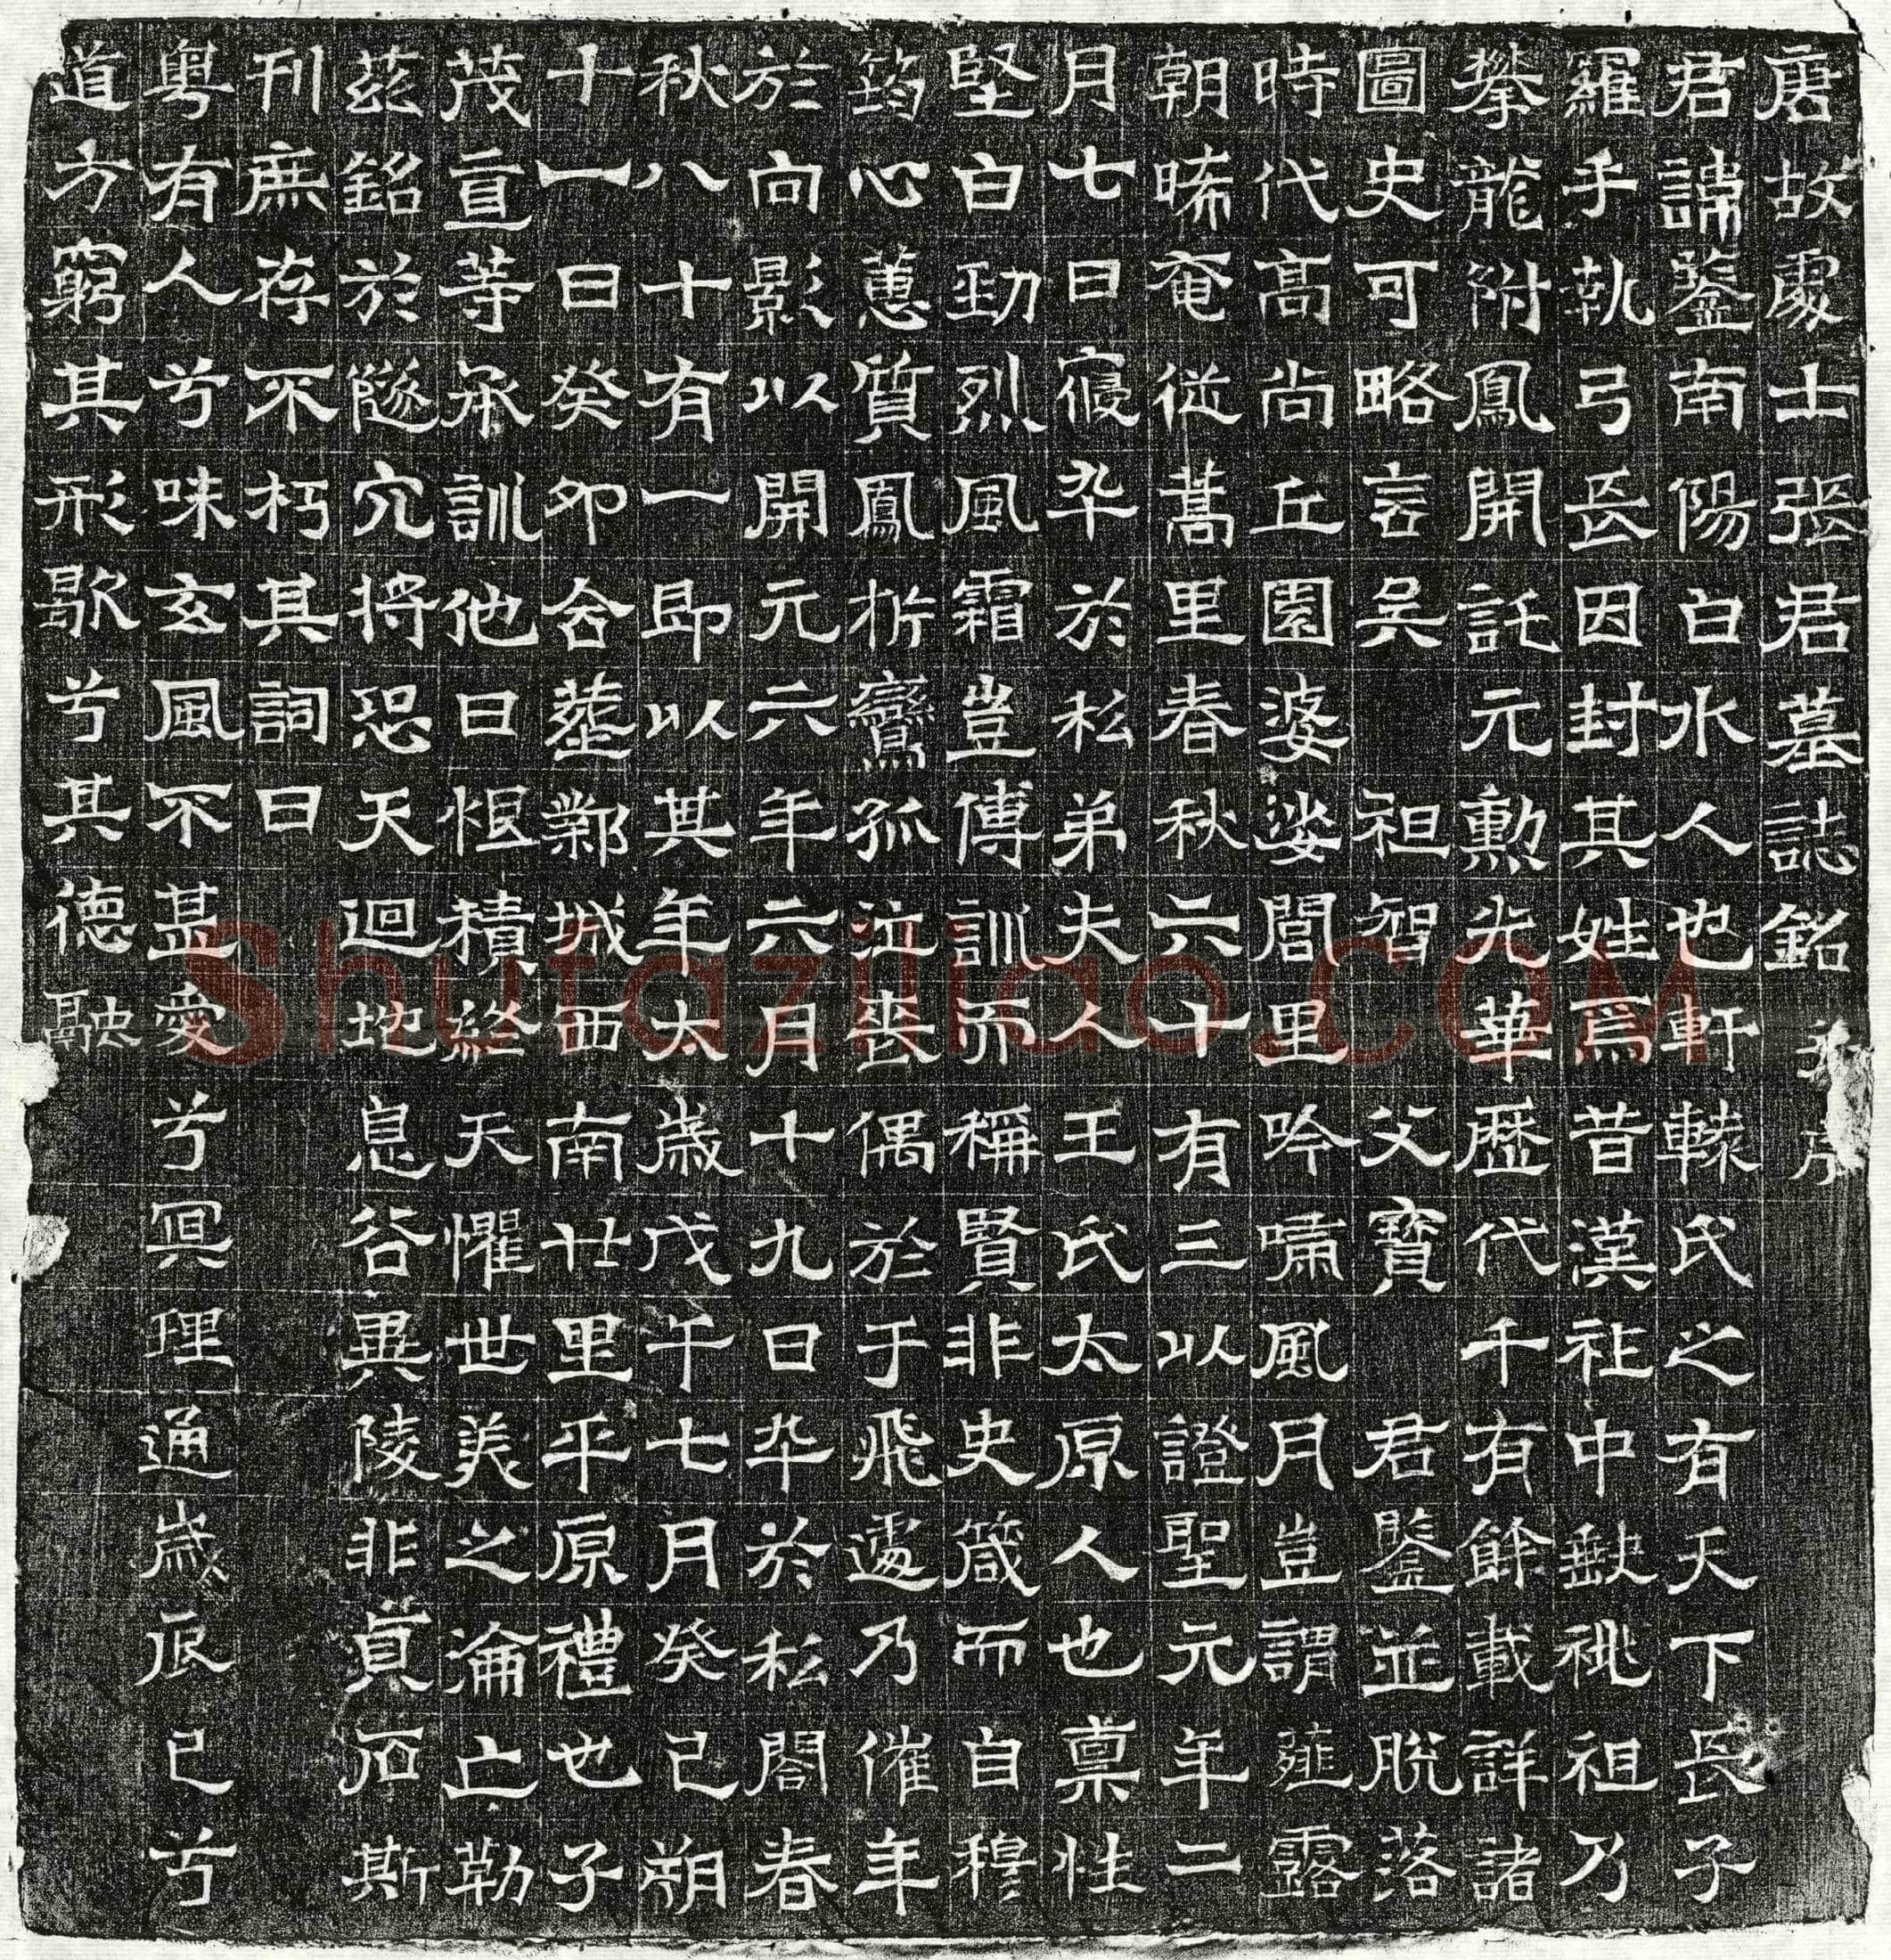 唐故處士張君墓誌銘并序
君諱鑒南陽白水人也軒轅氏之有天下長子
羅乎執弓長因封其姓焉昔漢祉中歇祧祖乃
攀龍附鳳開託元勲光華歷代千有餘載詳諸
圖史可略言矣 祖智 父寶 君鑒並脫落
時代高尚丘園婆娑閭里吟嘯風月豈謂薤露
朝晞奄從蒿里春秋六十有三以證聖元年二
月七日寢卒於私弟夫人王氏太原人也稟性
堅白勁烈風霜豈傅訓而稱賢非史箴而自穆
筠心蕙質鳳析鸞孤泣喪偶於于飛遽乃催年
於向影以開元六年六月十九日卒於私閤春
秋八十有一即以其年太歲戊午七月癸己朔
十一日癸卯合葬鄴城西南廿里平原禮也子
茂亘等承訓他日恨積終天懼世美之淪亡勒
茲銘於隧穴將恐天迴地息谷異陵非貞石斯
刊庶存不朽其詞曰
粤有人兮味玄風不甚愛兮冥理通歲辰已兮
道方窮其形歇兮其德融
Shufaziliao.COM